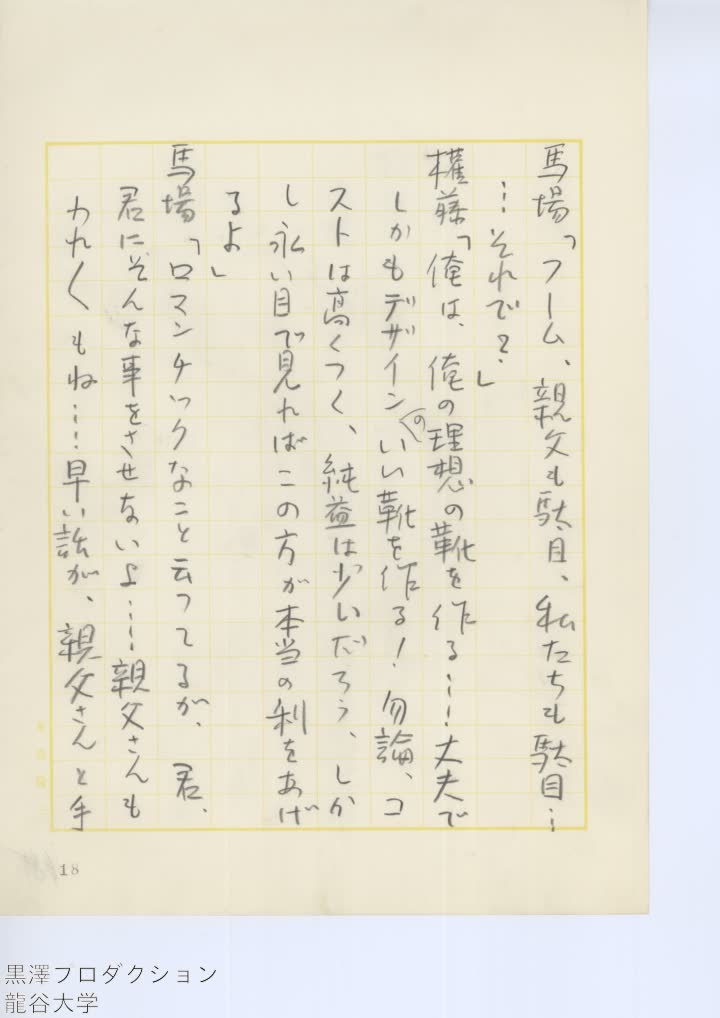 馬場「フーム、親父も駄目、私たちも駄目…
…それで？」
權藤「俺は、俺の理想の靴を作る…！丈夫で
しかもデザインのいい靴を作る！勿論、コ
ストは高くつく、純益は少いだろう、しか
し永い目で見ればこの方が本当の利をあげ
るよ」
馬場「ロマンチックなこと云ってるが、君、
君にそんな事をさせないよ……親父さんも
われ〱もね…！早い話が、親父さんと手
18
黒澤プロダクション
龍谷大学